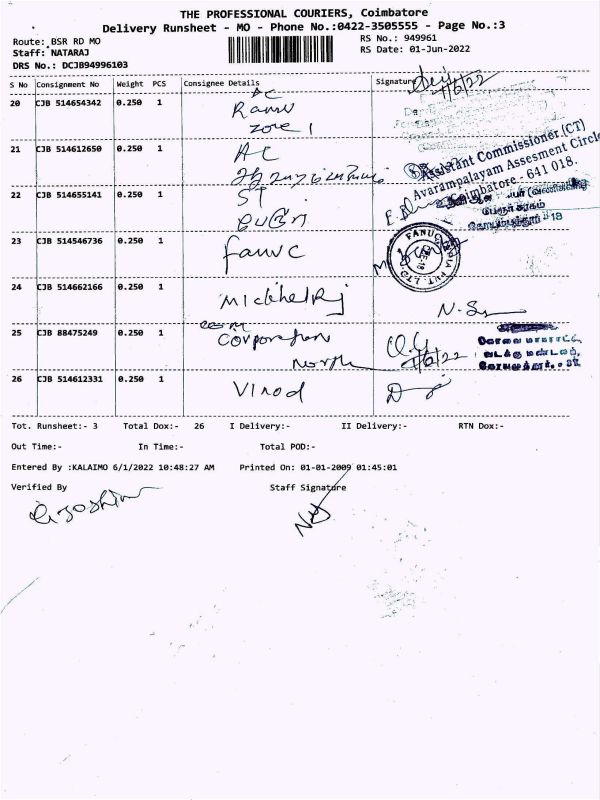 THE PROFESSIONAL COURIERS, Coimbatore
Delivery Runsheet - MO - Phone No.:0422-3505555 - Page No.:3
Route: BSR RD MO
RS No.: 949961
Staff: NATARAJ
RS Date: 01-Jun-2022
DRS No.: DCJB94996103
S No Consignment No Weight PCS Consignee Details Signature
AC
20 CJB 514654342 0.250 1 Ramu
zone 1
21 CJB 514612650 0.250 1 AC
Assistant Commissioner (CT)
Avarampalayam Assesment Circle
Coimbatore - 641 018.
22 CJB 514655141 0.250 1 ST
பேரூர்
பேரூர் சரகம்
கோயம்புத்தூர் - 18
23 CJB 514546736 0.250 1 fanuc
FANUC INDIA PVT. LTD
24 CJB 514662166 0.250 1 MichhelRj
25 CJB 88475249 0.250 1 Corporation
North
1/6/22
கோவை மாநகராட்சி,
வடக்கு மண்டலம்,
26 CJB 514612331 0.250 1 Vinod
Tot. Runsheet:- 3 Total Dox:- 26 I Delivery:- II Delivery:- RTN Dox:-
Out Time:- In Time:- Total POD:-
Entered By :KALAIMO 6/1/2022 10:48:27 AM Printed On: 01-01-2009 01:45:01
Verified By Staff Signature